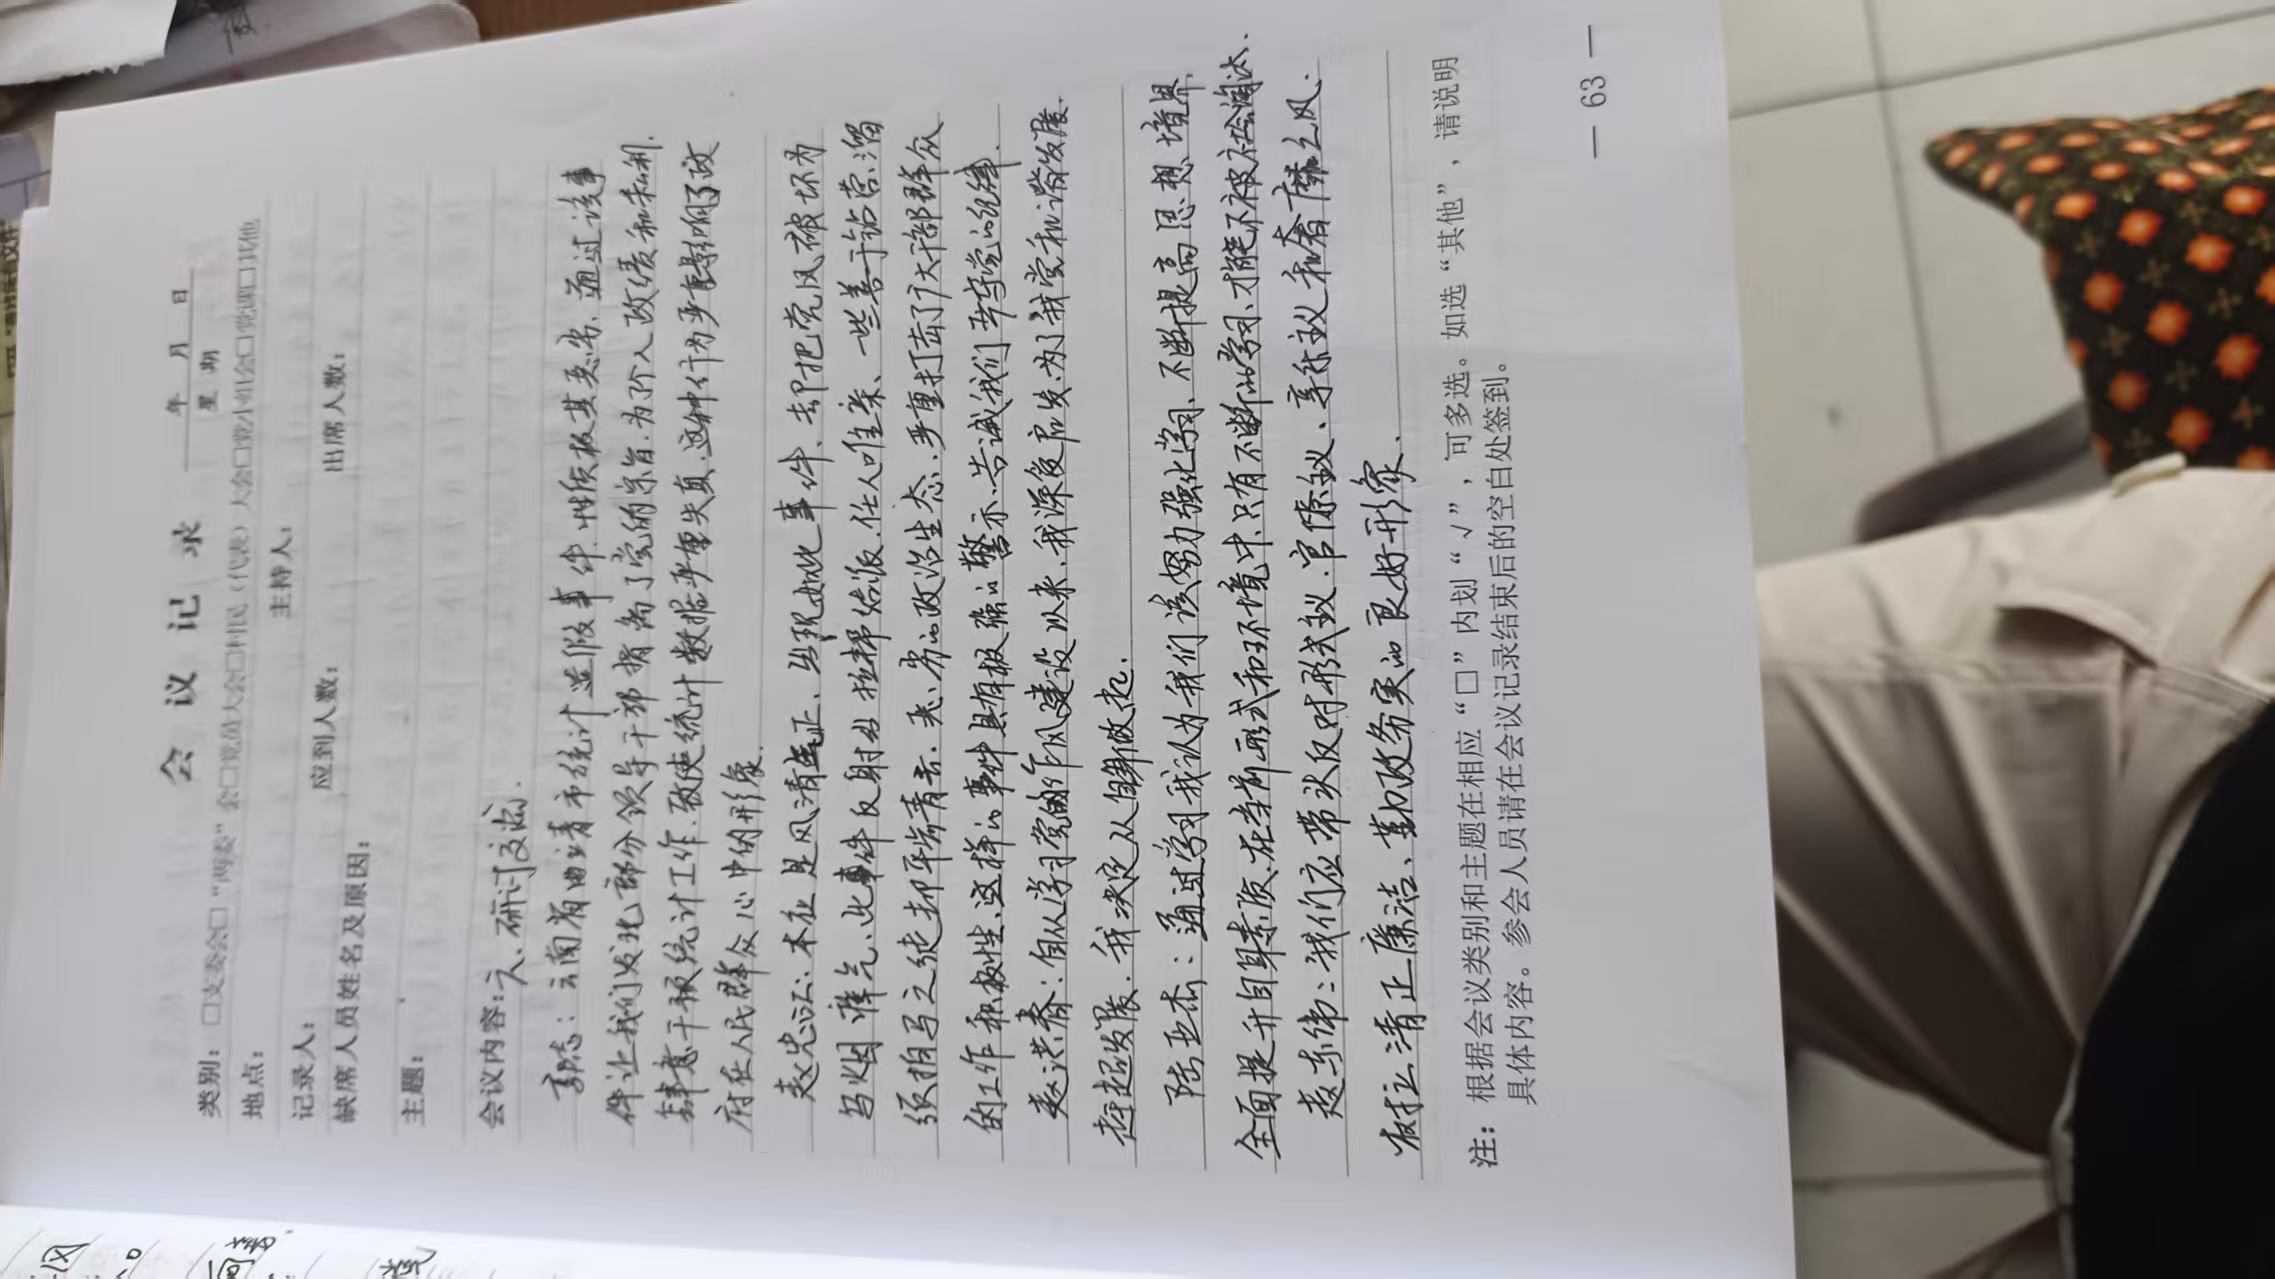 会议记录
年 月 日
星期
类别：□支委会□“两委”会□党员大会□村民（代表）大会□党小组会□党课□其他
地点：
主持人：
记录人：
应到人数：
出席人数：
缺席人员姓名及原因：
主题：
会议内容：六、研讨交流.
郭志：云南省曲靖市统计造假事件.性质极其恶劣、通过该事
件让我们发北部分领导干部背离了党的宗旨.为个人政绩和私利.
肆意干预统计工作.致使统计数据严重失真.这种行为严重影响了政
府在人民群众心中的形象.
赵忠运：本应是风清气正、出现如此事件、却把党风被坏为
乌烟瘴气、此事件反射出拉帮结派.任人唯亲、一些善于钻营、溜
须拍马之徒却平步青云.恶劣的政治生态.严重打击了广大干部群众
的工作积极性.这样的事件具有极强的警示.告诫我们要守党的纪律.
赵洪春：自从学习党的作风建设以来.我深受启发.为了我党和谐发展
超越发展.我决定从自身做起.
陆亚杰：通过学习我认为我们该努力强化学习、不断提高思想境界
全面提升自身素质.在当前形式和环境中只有不断的学习、才能不被社会淘汰.
赵东伟：我们应带头反对形式主义.官僚主义、享乐主义和奢靡之风.
树立清正廉洁、勤政务实的良好形象.
注：根据会议类别和主题在相应“□”内划“√”，可多选。如选“其他”，请说明
具体内容。参会人员请在会议记录结束后的空白处签到。
— 63 —